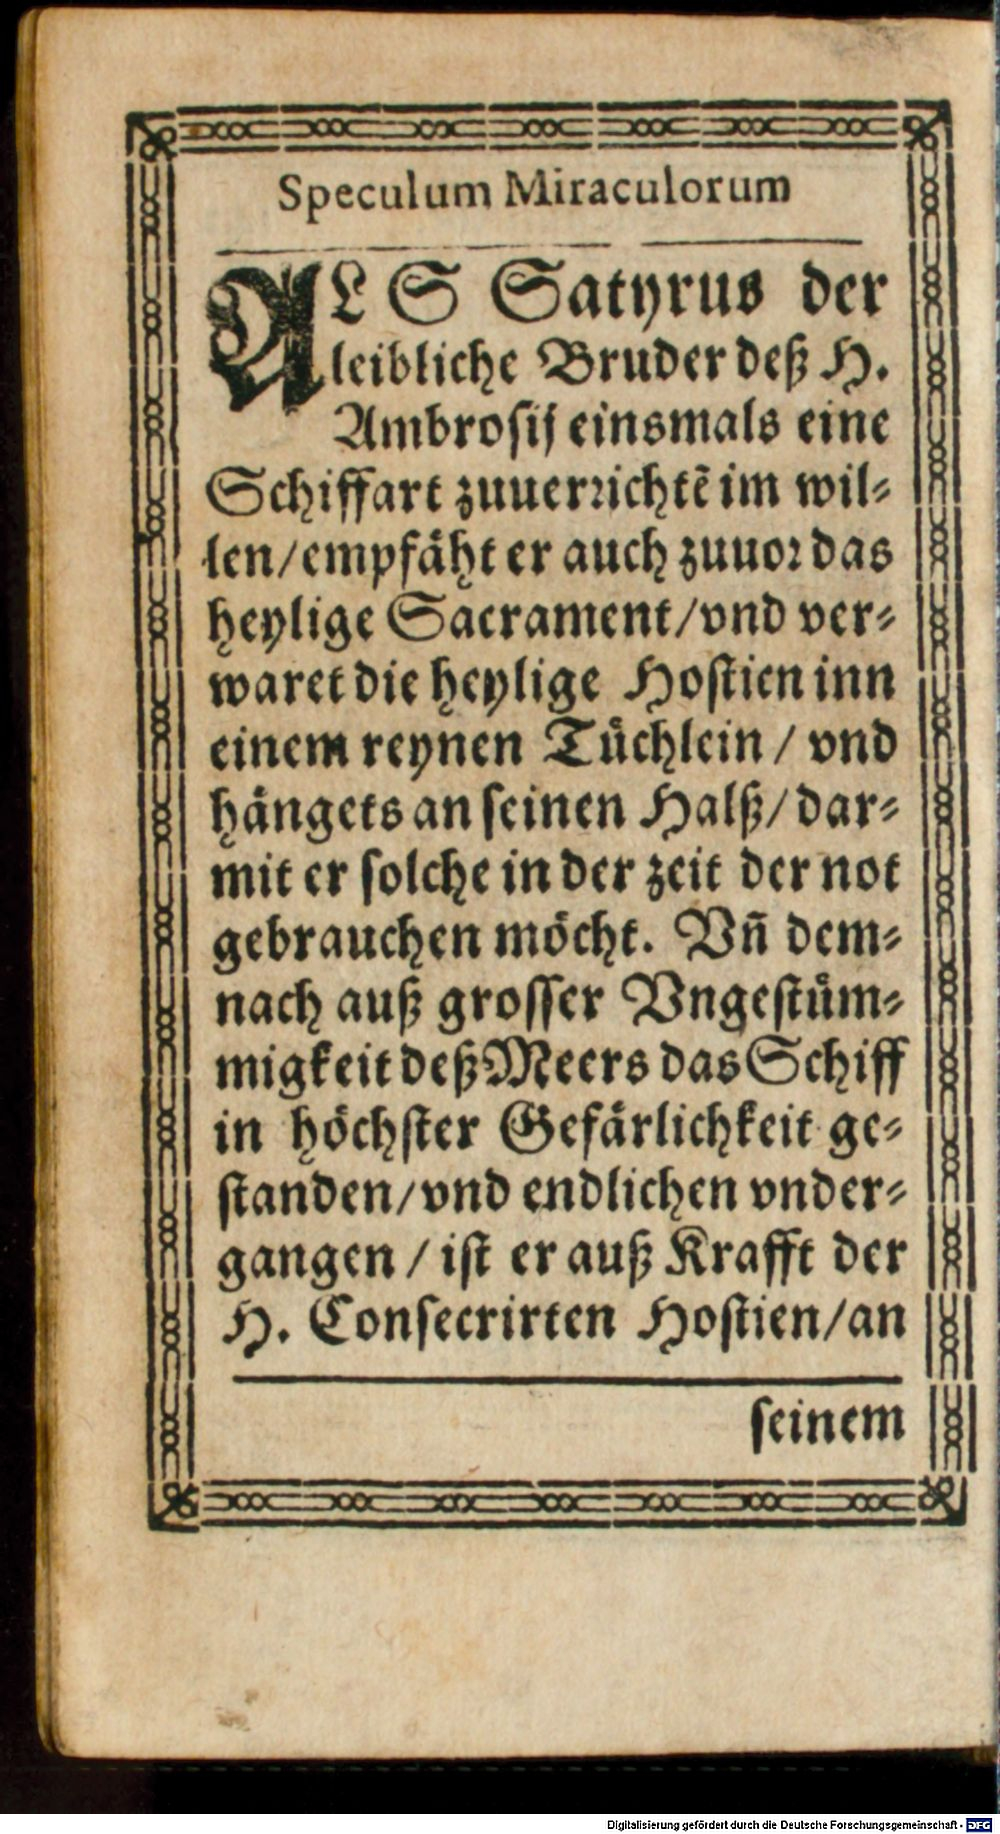 Speculum Miraculorum
ALS Satyrus der
leibliche Bruder deß H.
Ambrosij einsmals eine
Schiffart zuuerrichtē im wil-
len/empfäht er auch zuuor das
heylige Sacrament/vnd ver-
waret die heylige Hostien inn
einem reynen Tüchlein / vnd
hängets an seinen Halß/ dar-
mit er solche in der zeit der not
gebrauchen möcht. Vñ dem-
nach auß grosser Vngestüm-
migkeit deß Meers das Schiff
in höchster Gefärlichkeit ge-
standen/vnd endlichen vnder-
gangen / ist er auß Krafft der
H. Consecrirten Hostien/an
seinem
Digitalisierung gefördert durch die Deutsche Forschungsgemeinschaft - DFG